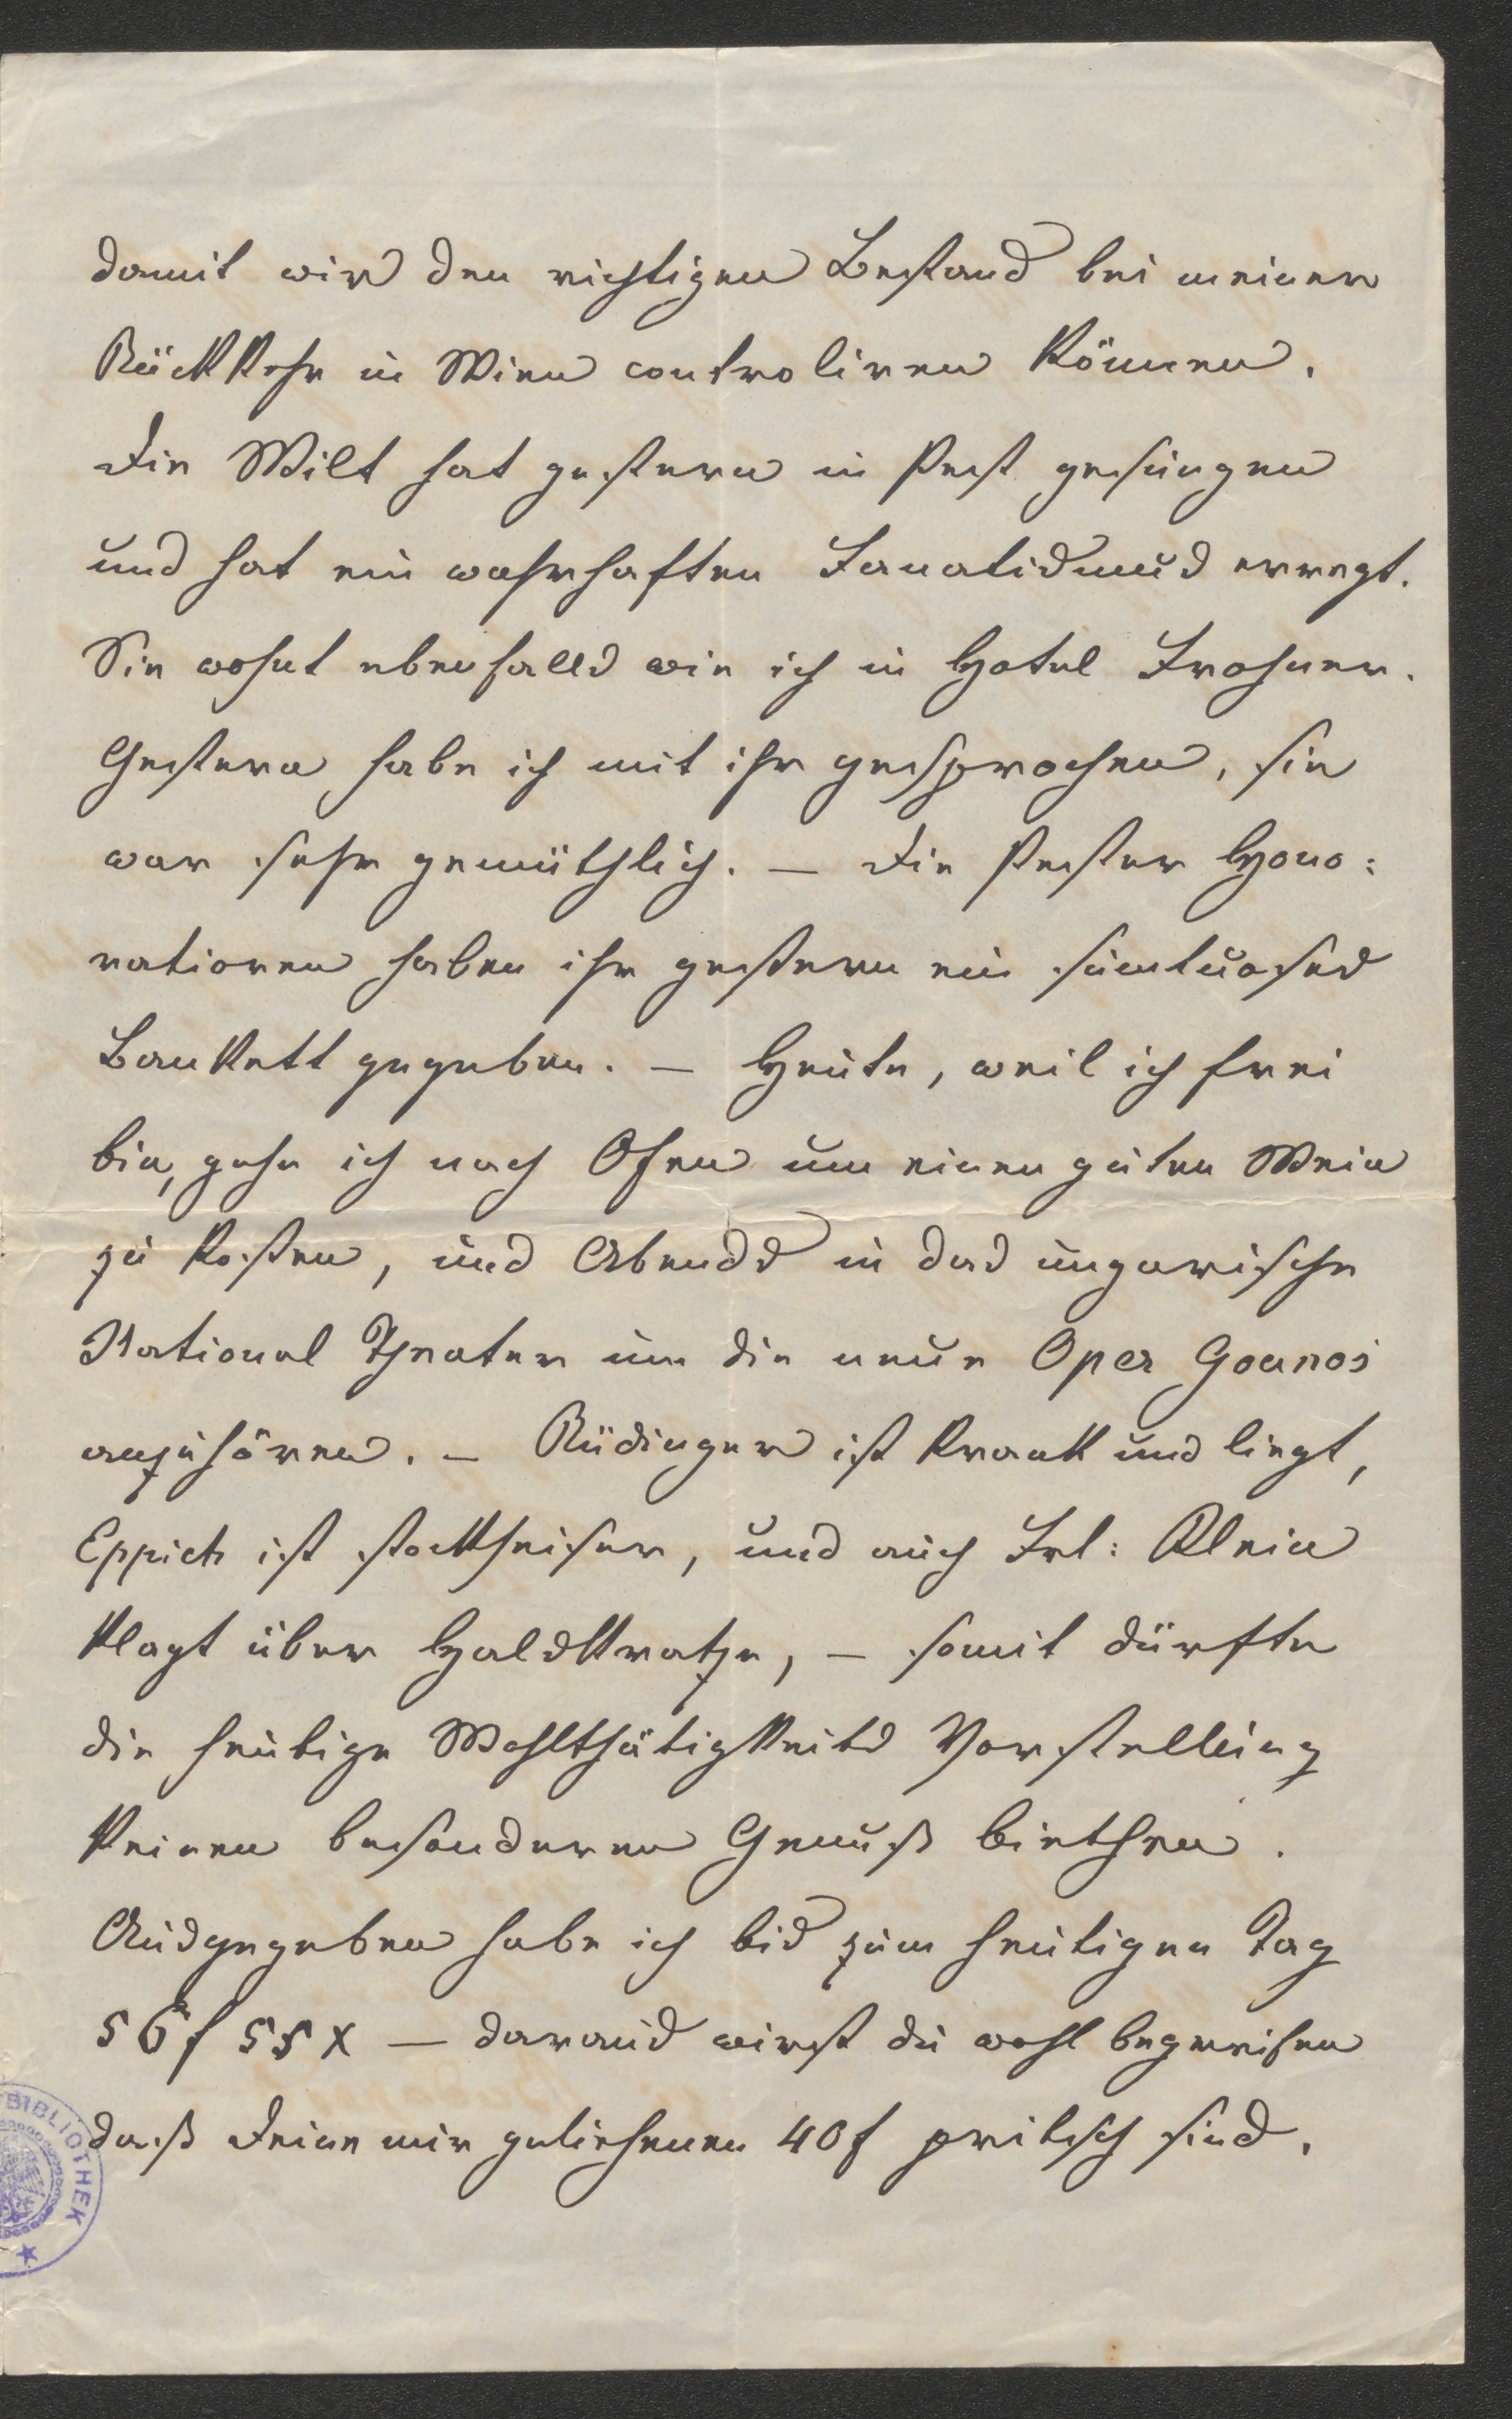 damit wir den richtigen Bestand bei meiner
Rückkehr in Wien controliren können.
Die Wilt hat gestern in Pest gesungen
und hat ein wahrhaften Fanatismus erregt.
Sie wohnt ebenfalls wie ich in Hotel Frohner.
Gestern habe ich mit ihr gesprochen, sie
war sehr gemüthlich. — Die Pester Hono:
rationen haben ihr gestern ein sumtuoses
Bankett gegeben. — Heute, weil ich frei
bin, gehe ich nach Ofen um einen guten Wein
zu kosten, und Abends in das ungarische
National Theater um die neue Oper Gounos
anzuhören. — Rüdinger ist krank und liegt,
Eppich ist stockheiser, und auch Frl: Klein
klagt über Halskratze, — somit dürfte
die heutige Wohlthätigkeits Vorstellung
keinen besonderen Genuß biethen.
Ausgegeben habe ich bis zum heutigen Tag
56f 55x — daraus wirst du wohl begereifen
daß Deine mir geliehenen 40f pritsch sind.
BIBLIOTHEK